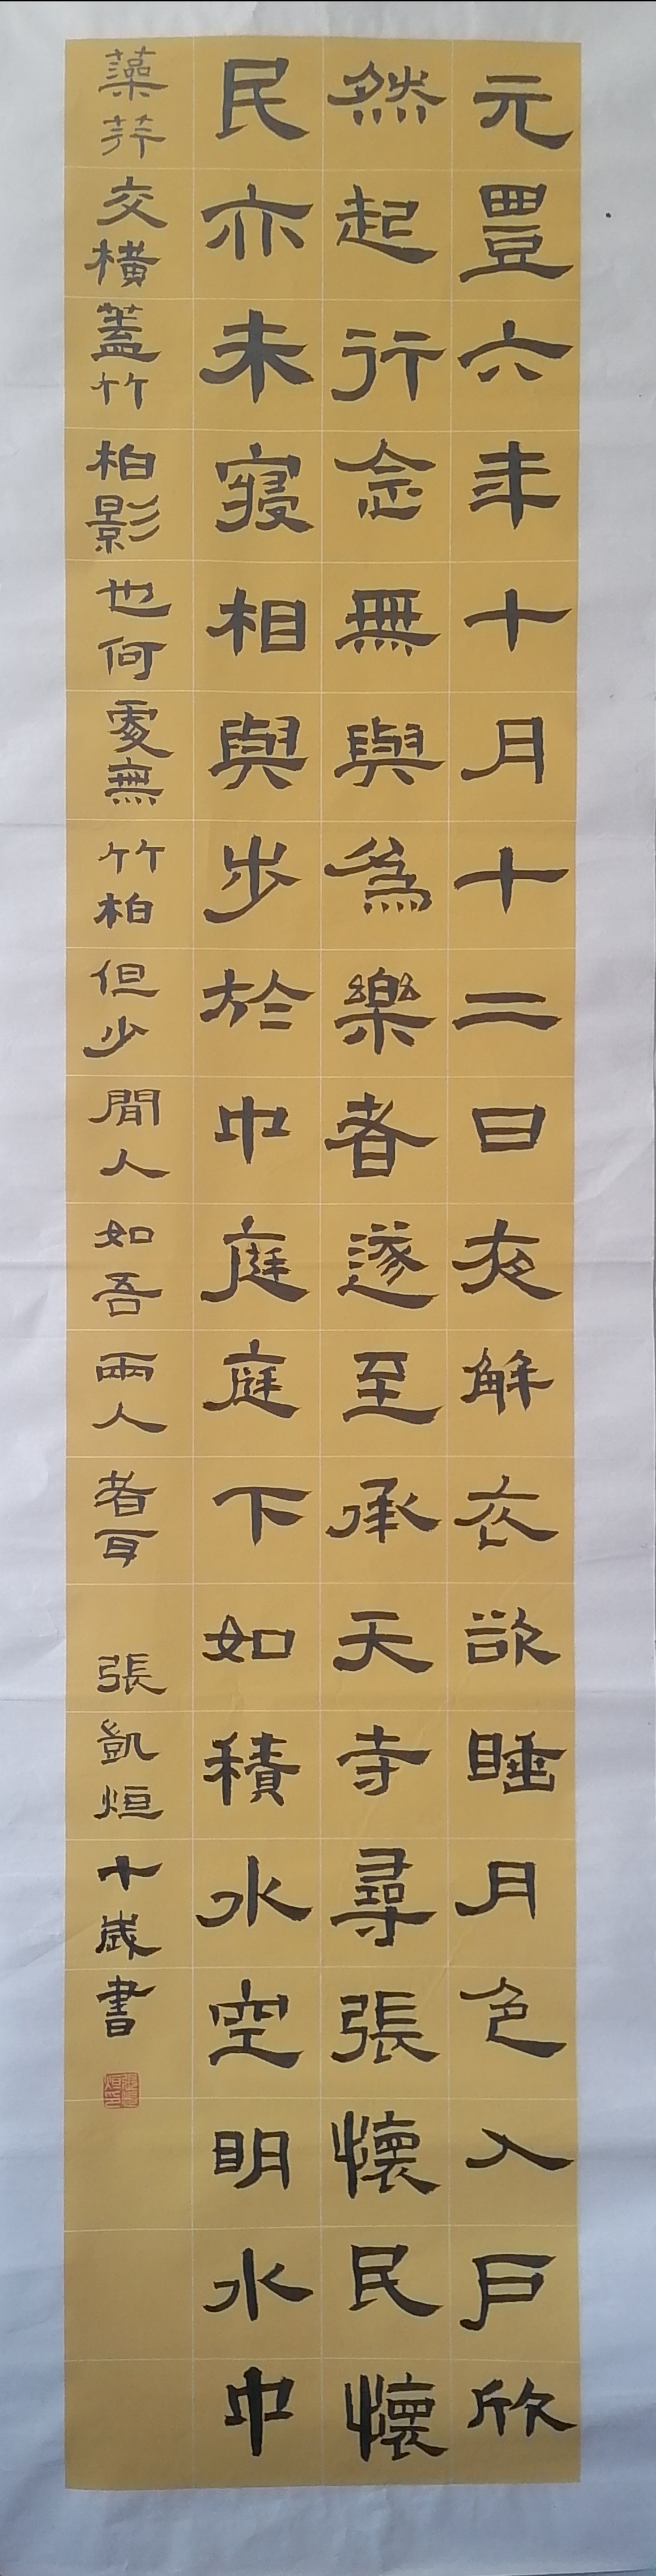 元豐六年十月十二日夜解衣欲睡月色入戶欣
然起行念無與為樂者遂至承天寺尋張懷民懷
民亦未寢相與步於中庭庭下如積水空明水中
藻荇交橫蓋竹柏影也何處無竹柏但少閒人如吾兩人者耳 張凱烜十歲書